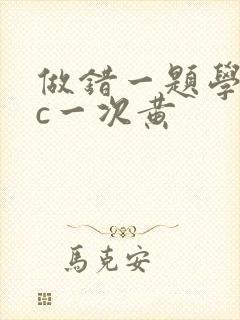 做錯一題學
c一次黄
馬克安